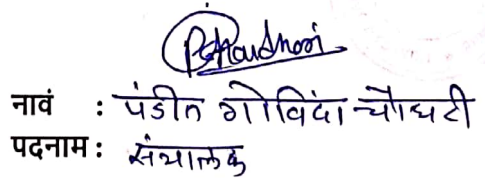 PGhaudhari
नावं : पंडीत गोविंदा चौधरी
पदनाम : संचालक